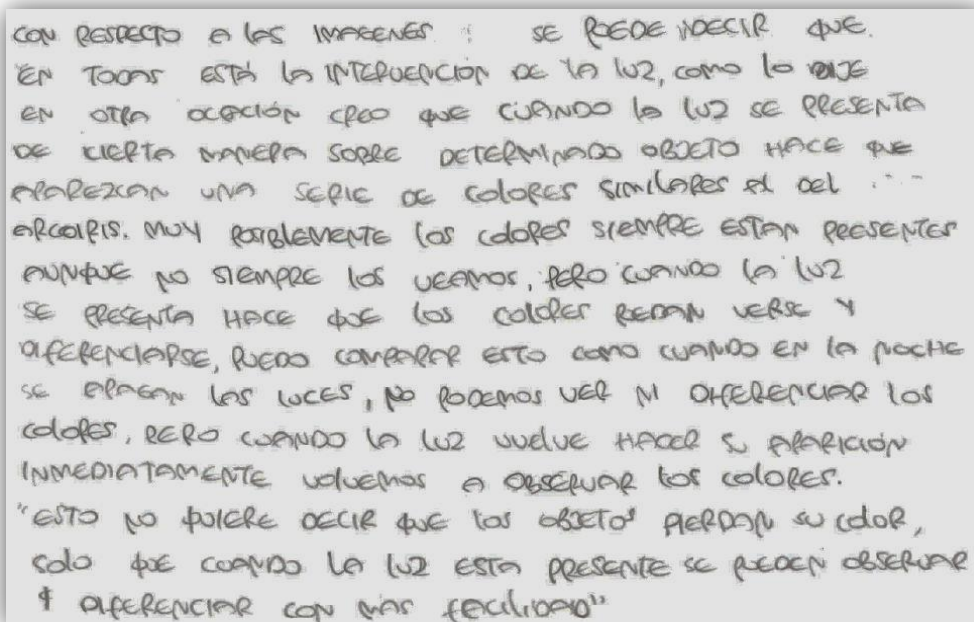 CON RESPECTO A LAS IMAGENES : SE PUEDE DECIR QUE.
EN TODAS ESTÁ LA INTERVENCIÓN DE LA LUZ, COMO LO DIJE
EN OTRA OCACIÓN CREO QUE CUANDO LA LUZ SE PRESENTA
DE CIERTA MANERA SOBRE DETERMINADO OBJETO HACE QUE
APAREZCAN UNA SERIE DE COLORES SIMILARES AL DEL
ARCOIRIS. MUY POSIBLEMENTE LOS COLORES SIEMPRE ESTAN PRESENTES
AUNQUE NO SIEMPRE LOS VEAMOS, PERO CUANDO LA LUZ
SE PRESENTA HACE QUE LOS COLORES PUEDAN VERSE Y
DIFERENCIARSE, PUEDO COMPARAR ESTO COMO CUANDO EN LA NOCHE
SE APAGAN LAS LUCES, NO PODEMOS VER NI DIFERENCIAR LOS
COLORES, PERO CUANDO LA LUZ VUELVE HACER SU APARICIÓN
INMEDIATAMENTE VOLVEMOS A OBSERVAR LOS COLORES.
"ESTO NO QUIERE DECIR QUE LOS OBJETOS PIERDAN SU COLOR,
SOLO QUE CUANDO LA LUZ ESTA PRESENTE SE PUEDEN OBSERVAR
Y DIFERENCIAR CON MAS FACILIDAD"